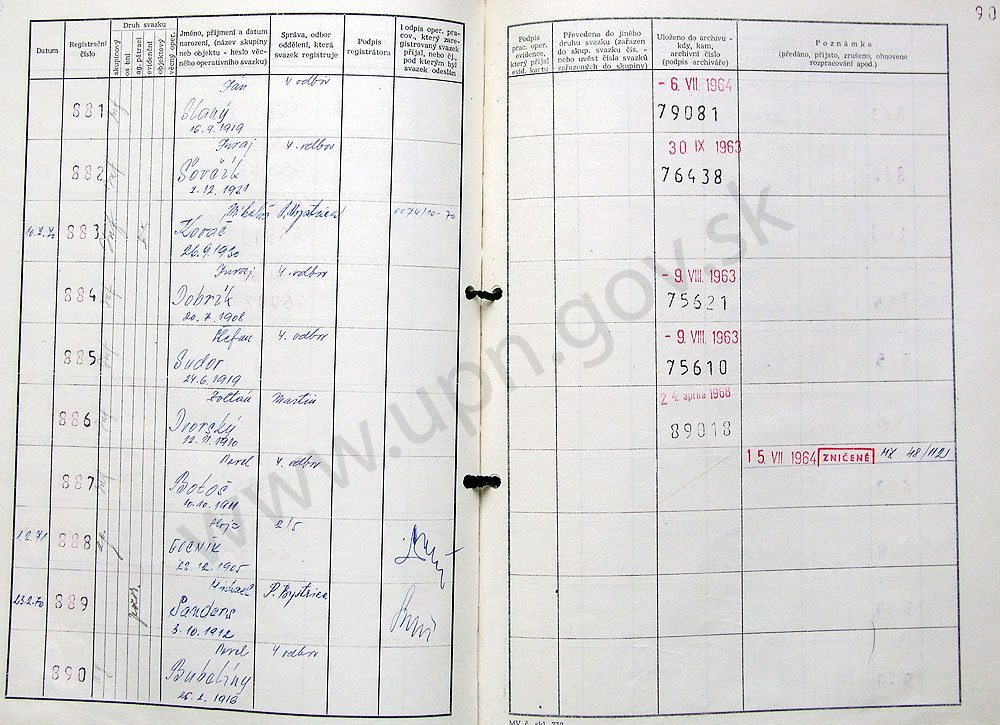 90
Datum
Registrační číslo
Druh svazku
skupinový
osobní
ag. pátrací
evidenční
objektový
věcný oper.
Jméno, příjmení a datum narození, (název skupiny neb objektu - heslo věcného operativního svazku)
Správa, odbor oddělení, která svazek registruje
Podpis registrátora
Podpis oper. pracov., který zaregistrovaný svazek přijal, nebo čj., pod kterým byl svazek odeslán
Podpis prac. oper. evidence, který přijal evid. kartu
Převedeno do jiného druhu svazku (zařazen do skup. svazku čís., - nebo uvést čísla svazků zařazených do skupiny)
Uloženo do archivu - kdy, kam, archivní číslo (podpis archiváře)
Poznámka
(předáno, přijato, zrušeno, obnoveno rozpracování apod.)
881 Jan Slaný 16.9.1919 4 odbor - 6. VII. 1964 79081
882 Juraj 4. odbor 30 IX 1963 76438
883 Kováč 26.9.1930 P. Bystrica
884 Juraj Dobrík 20.7.1908 4. odbor - 9. VIII. 1963 75621
885 Štefan Sudor 24.6.1919 4. odbor - 9. VIII. 1963 75610
886 Zoltán Dvorský 12.11.1910 Martin 24. apríla 1968 89018
887 Pavel Botoš 10.10.1911 4. odbor 15 VII 1964 ZNIČENÉ
1.2.71 888 Alojz 22.12.1905 2/5
23.2.70 889 Michael Sanders 3.10.1912 P. Bystrica
890 Pavel Bubeliny 4 odbor
www.upn.gov.sk